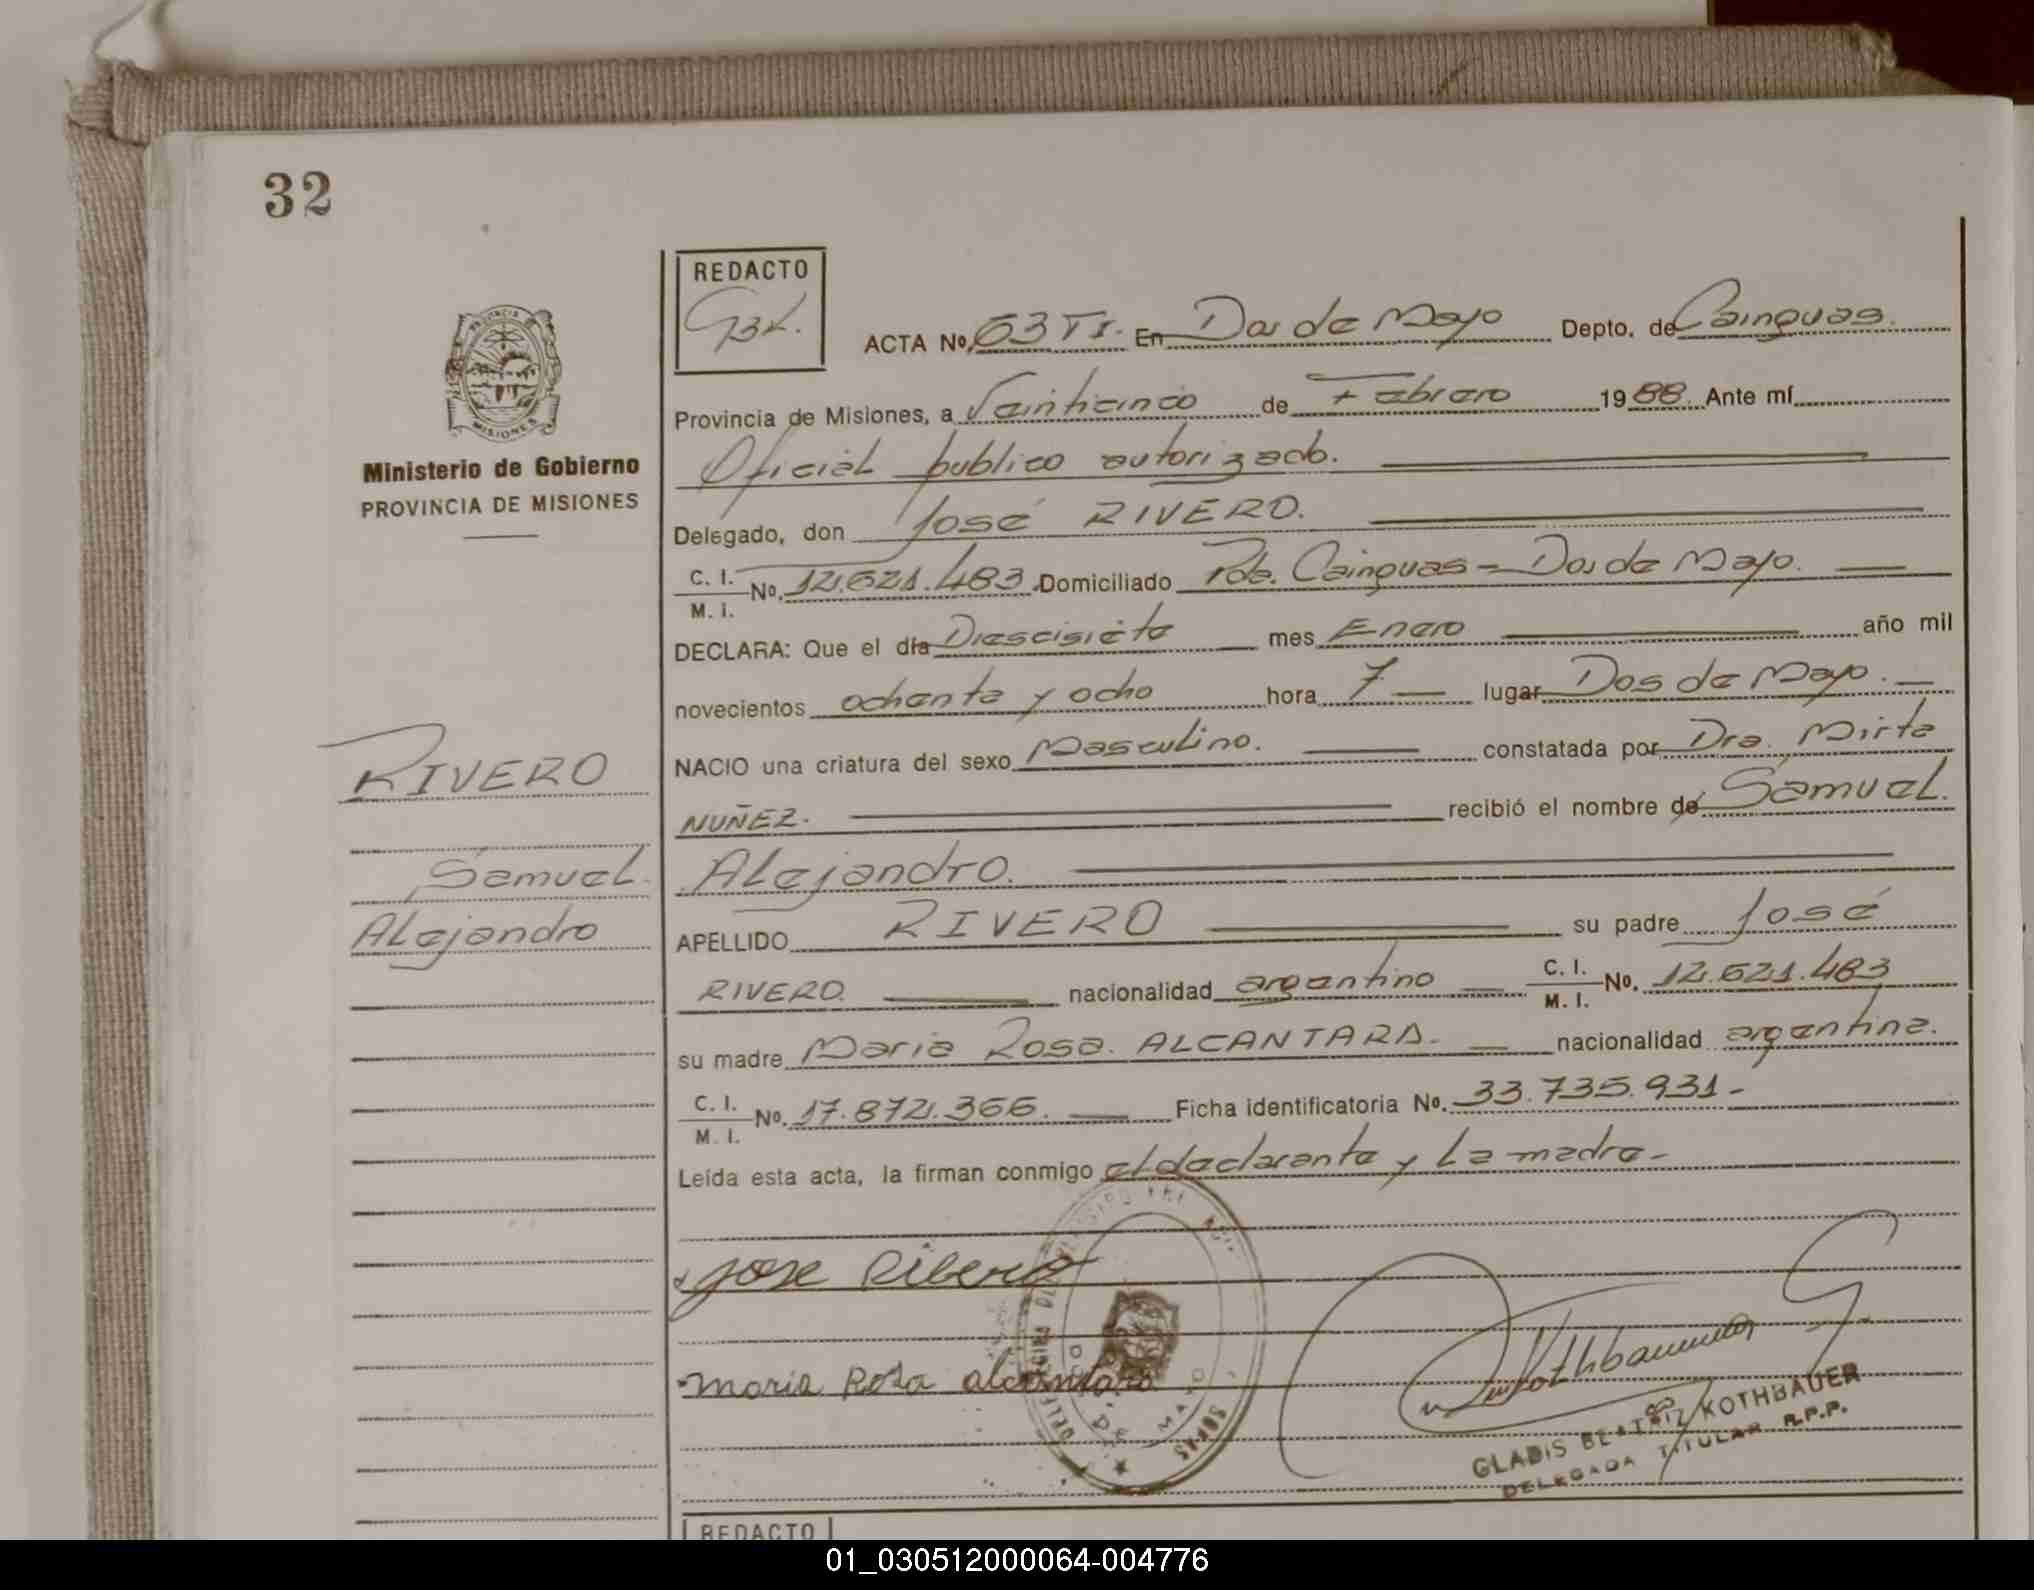 32
REDACTO
GBK.
ACTA Nº 63 TI. En Dos de Mayo Depto. de Cainguas.
Provincia de Misiones, a Veinticinco de Febrero 1988. Ante mí
Oficial publico autorizado.
Delegado, don José RIVERO.
C. I.
M. I. Nº. 12.621.483 Domiciliado Pda. Cainguas - Dos de Mayo.
DECLARA: Que el día Diescisiete mes Enero año mil
novecientos ochenta y ocho hora 7 lugar Dos de Mayo.
NACIO una criatura del sexo Masculino. constatada por Dra. Mirta
NUÑEZ. recibió el nombre de Samuel.
Alejandro.
APELLIDO RIVERO su padre José
RIVERO. nacionalidad argentino C. I.
M. I. Nº. 12.621.483
su madre Maria Rosa. ALCANTARA. nacionalidad argentina.
C. I.
M. I. Nº. 17.872.366. Ficha identificatoria Nº. 33.735.931-
Leída esta acta, la firman conmigo el declarante y la madre-
Jose Ribero
Maria Rosa alcantara
GLADIS BEATRIZ KOTHBAUER
DELEGADA TITULAR R.P.P.
PROVINCIA
MISIONES
Ministerio de Gobierno
PROVINCIA DE MISIONES
RIVERO
Samuel.
Alejandro
REDACTO
01_030512000064-004776